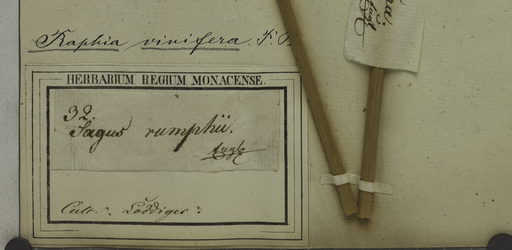 Raphia vinifera. P. B.
HERBARIUM REGIUM MONACENSE.
32.
Sagus rumphii.
Cult. Loddiges